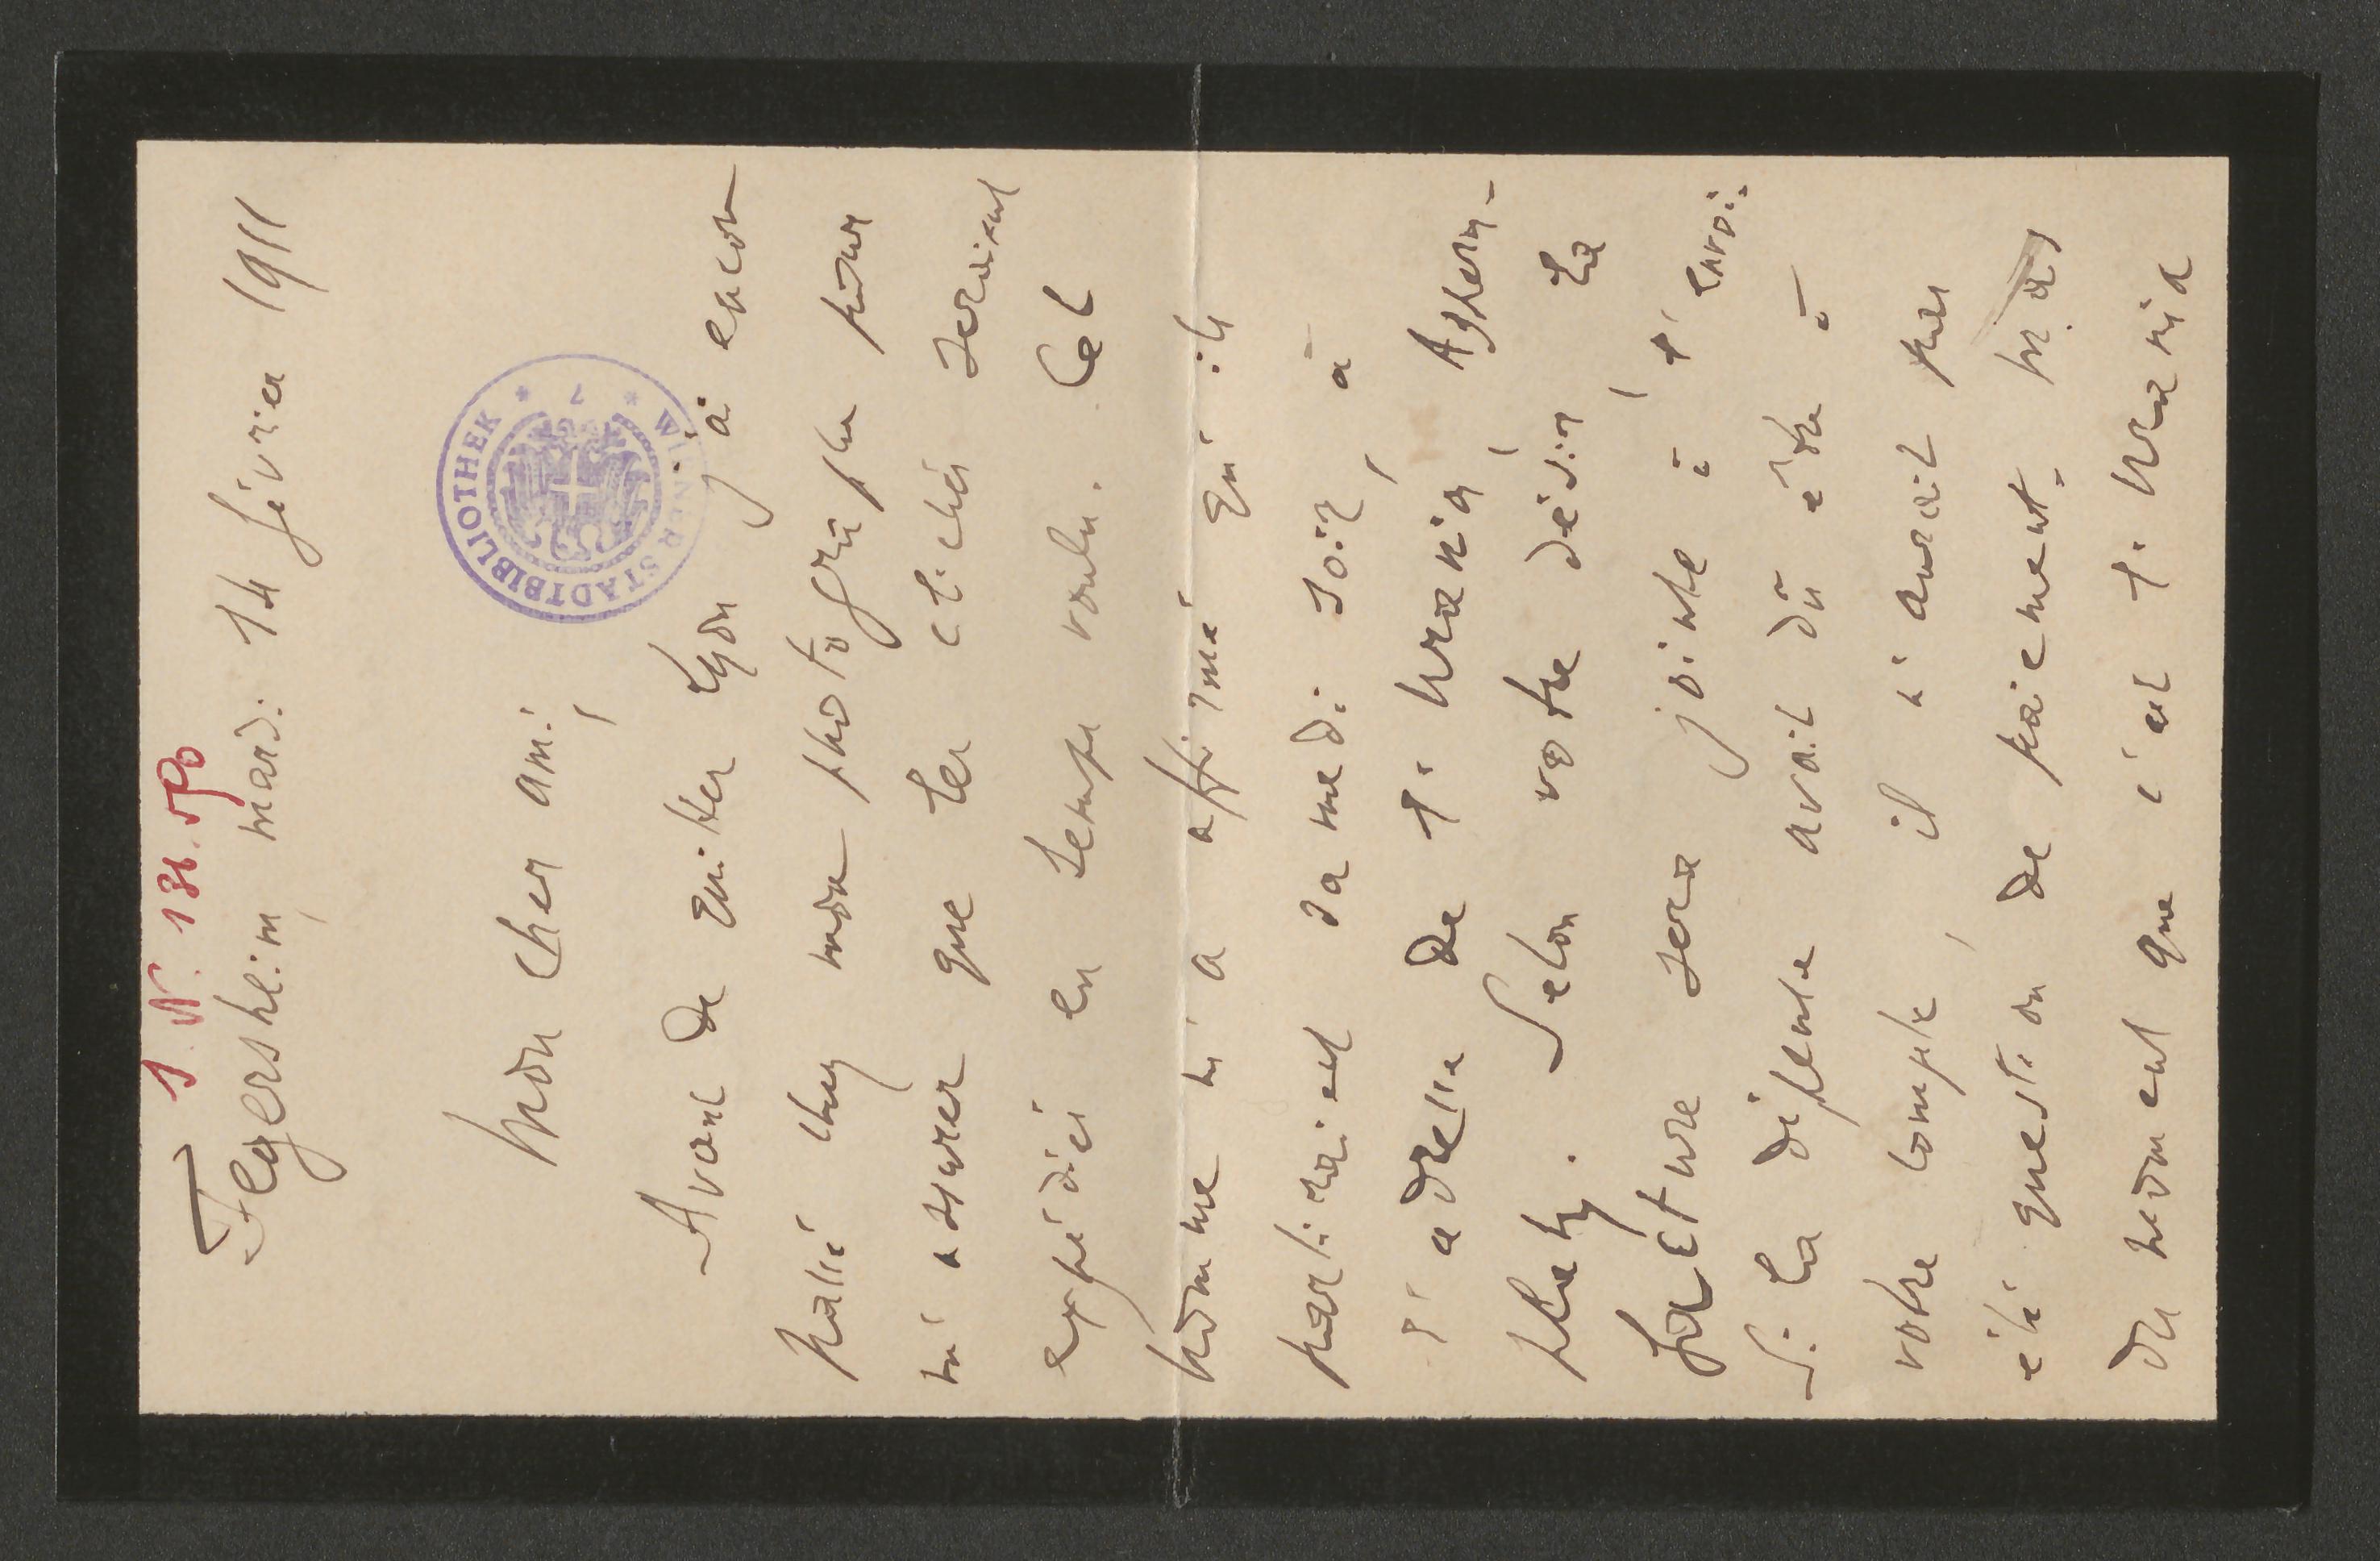 J. N. 136.590
Fegersheim, mardi 14 février 1911
WIENER STADTBIBLIOTHEK
Mon cher ami,
Avant de quitter Lyon j'ai encore
passé chez mon photographe pour
m'assurer que les clichés seraient
expédiés en temps voulu. Cet
homme m'a affirmé qu'ils
partiraient samedi soir, à
l'adresse de l'Urania, Asplern-
platz. Selon votre désir la
facture sera jointe à l'envoi.
Si la dépense avait dû être à
votre compte, il n'aurait pas
été question de paiement, mais
du moment que c'est l'Urania